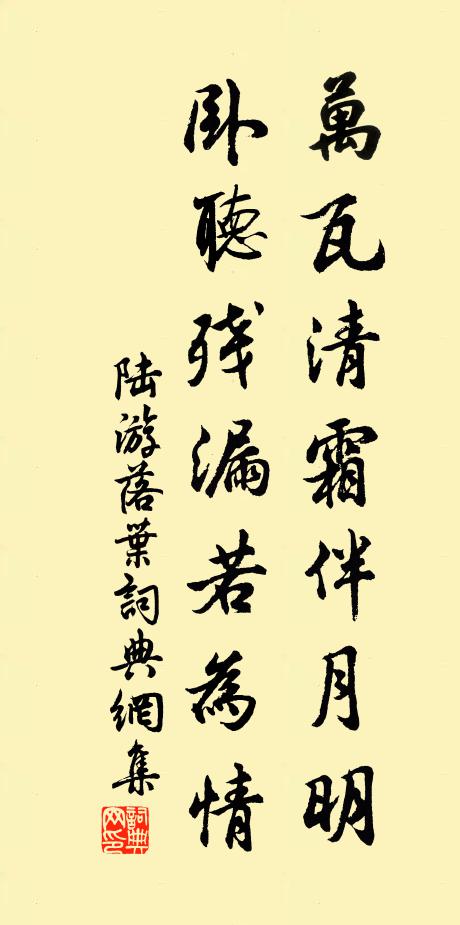 萬瓦清霜伴月明
卧聽残漏若為情
陆游落葉詞典網集
詞典
网印